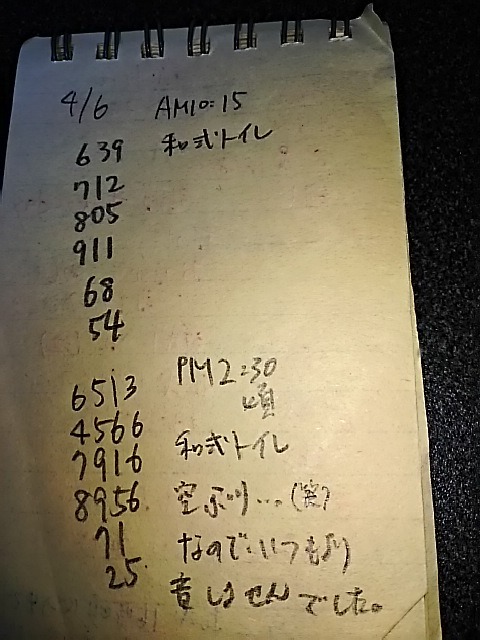 4/6 AM10:15
639 和式トイレ
712
805
911
68
54
PM2:30
6513 頃
4566
7916 和式トイレ
8956 空ぶり…。(笑)
71 なので、いつもより
25. 音しませんでした。